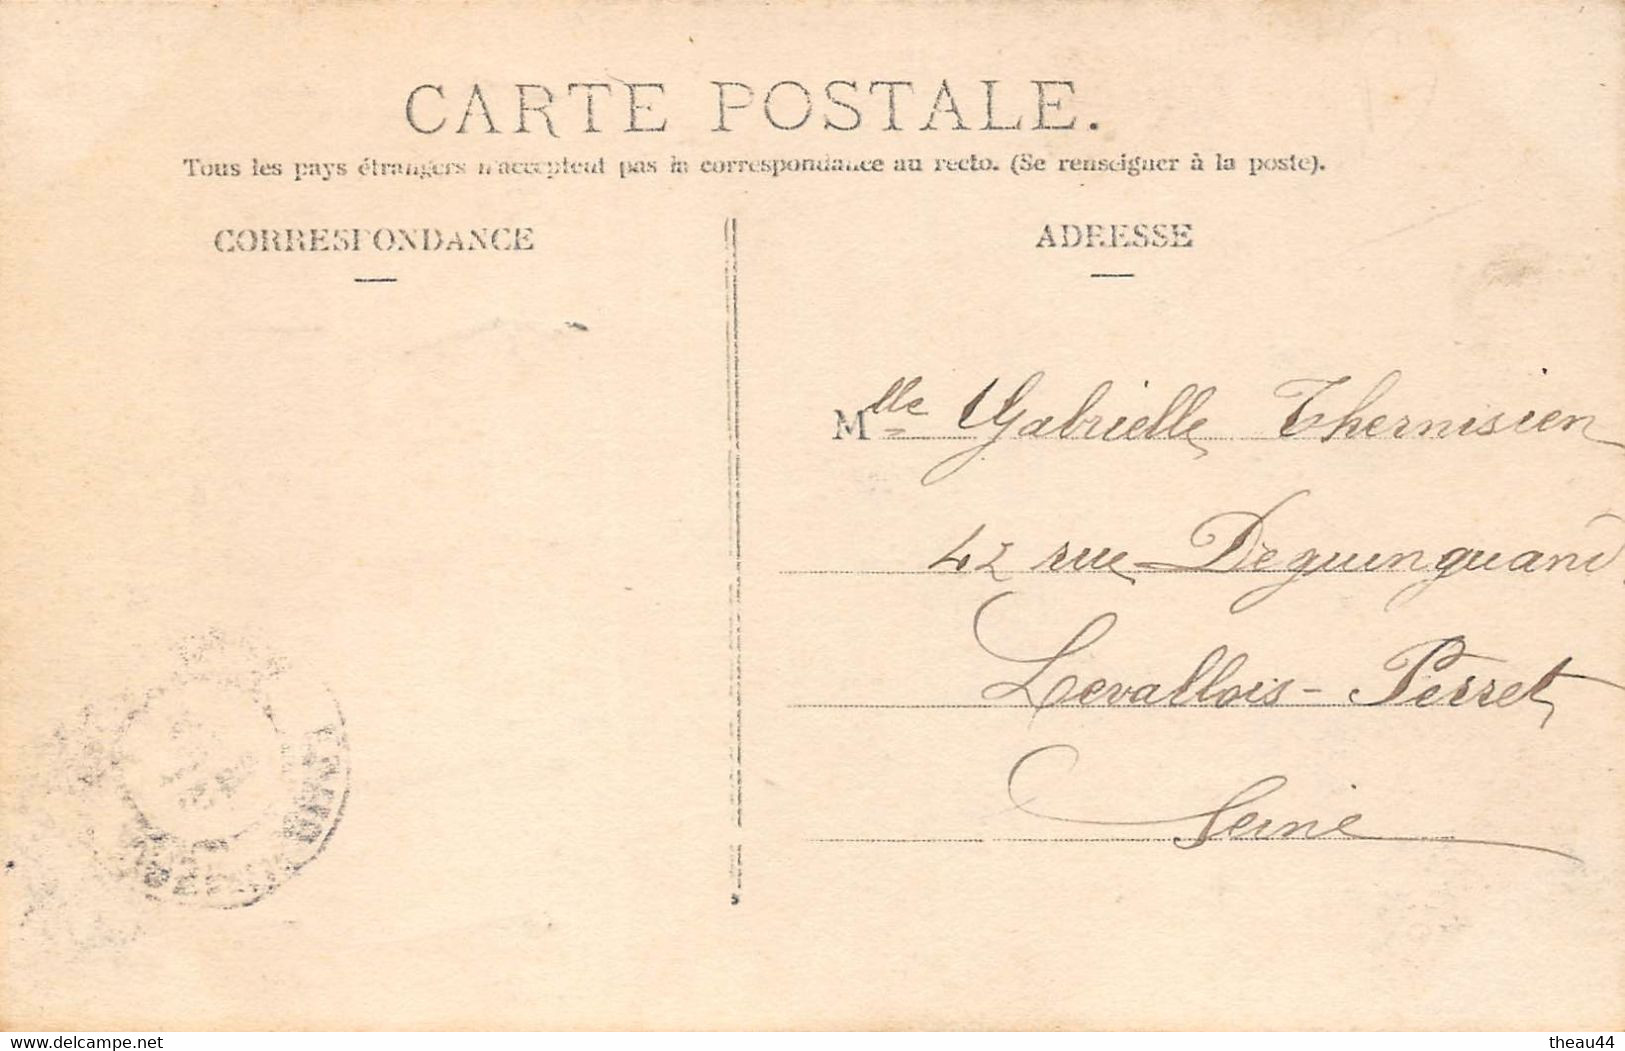 CARTE POSTALE.
Tous les pays étrangers n'acceptent pas la correspondance au recto. (Se renseigner à la poste).
CORRESPONDANCE
ADRESSE
Mlle Gabrielle Thernisien
42 rue Deguinguand
Levallois-Perret
Seine
www.delcampe.net
theau44